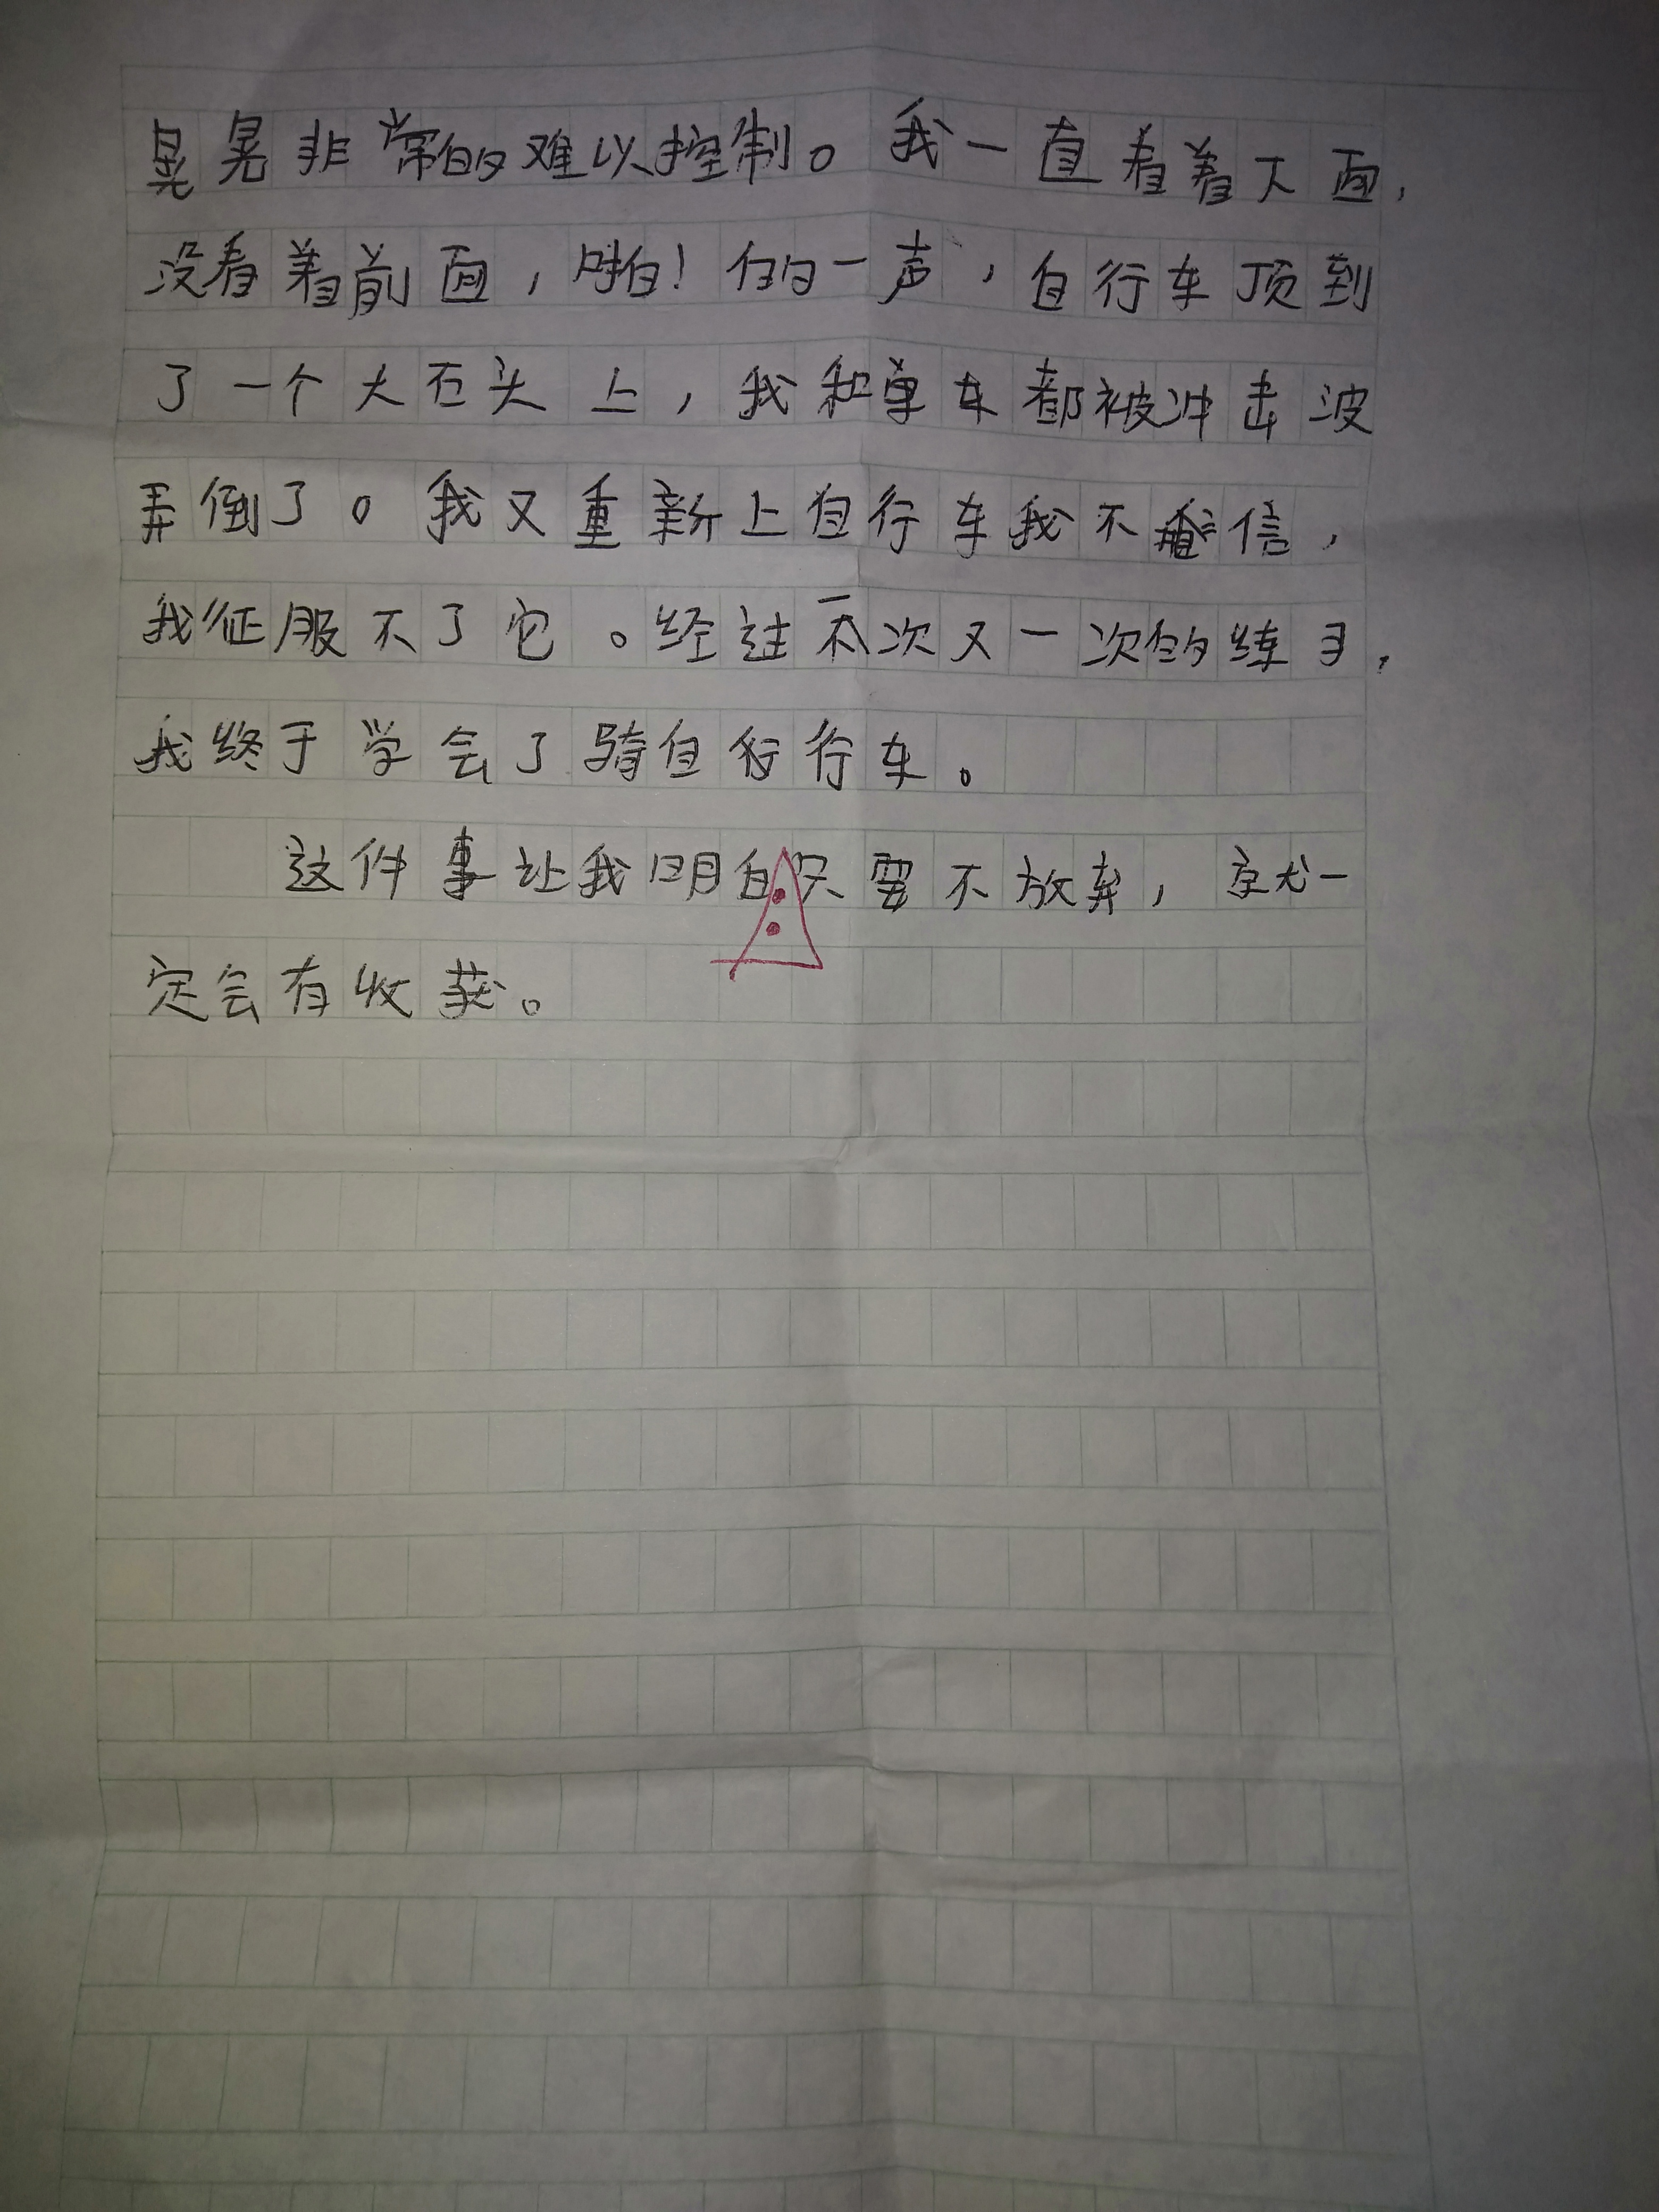 晃晃非常的难以控制。我一直看着下面，
没看着前面，啪！的一声，自行车顶到
了一个大石头上，我和单车都被冲击波
弄倒了。我又重新上自行车我不信，
我征服不了它。经过一次又一次的练习，
我终于学会了骑自行车。
这件事让我明白只要不放弃，就一
定会有收获。